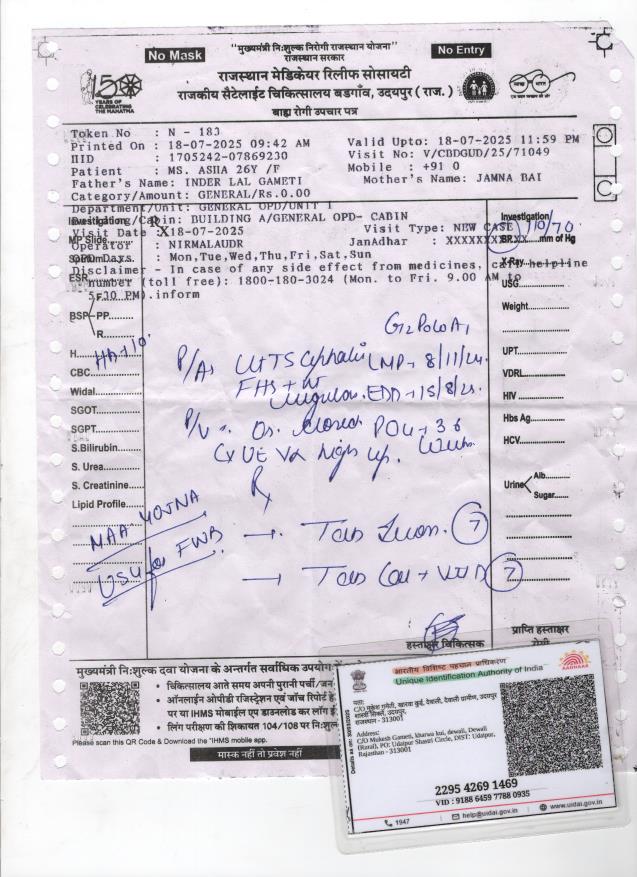 "मुख्यमंत्री निःशुल्क निरोगी राजस्थान योजना"
No Mask
राजस्थान सरकार
No Entry
राजस्थान मेडिकेयर रिलीफ सोसायटी
राजकीय सैटेलाईट चिकित्सालय बडगाँव, उदयपुर ( राज. )
150
YEARS OF
CELEBRATING
THE MAHATMA
बाह्य रोगी उपचार पत्र
Token No : N - 183
Printed On : 18-07-2025 09:42 AM Valid Upto: 18-07-2025 11:59 PM
HID : 1705242-07869230 Visit No: V/CBDGUD/25/71049
Patient : MS. ASHA 26Y /F Mobile : +91 0
Father's Name: INDER LAL GAMETI Mother's Name: JAMNA BAI
Category/Amount: GENERAL/Rs.0.00
Department/Unit: GENERAL OPD/UNIT I
Building/Cabin: BUILDING A/GENERAL OPD- CABIN
Visit Date :18-07-2025 Visit Type: NEW CASE
Operator : NIRMALAUDR JanAdhar : XXXXXXXXXX
OPD Days. : Mon,Tue,Wed,Thu,Fri,Sat,Sun
Disclaimer - In case of any side effect from medicines, call helpline
number (toll free): 1800-180-3024 (Mon. to Fri. 9.00 AM to
5.30 PM).inform
Investigation
MP Slide
Sputum
ESR
BSP F
PP
R
H
CBC
Widal
SGOT
SGPT
S.Bilirubin
S. Urea
S. Creatinine
Lipid Profile
Investigation/
BP 110/70 mm of Hg
X-Ray
USG
Weight
UPT
VDRL
HIV
Hbs Ag.
HCV
Urine Alb.
Sugar
G2P0L0A1
P/A LMP → 8/11/24
FHS + EDD → 15/8/25
P/V Os. closed POG → 36
Cx high up. weeks
Rx
MAA YOJNA
USG for FWB
→ Tab 7
→ Tab Cal + Vit D 7
हस्ताक्षर चिकित्सक
प्राप्ति हस्ताक्षर
रोगी
मुख्यमंत्री निःशुल्क दवा योजना के अन्तर्गत सर्वाधिक उपयोग
• चिकित्सालय आते समय अपनी पुरानी पर्ची/जन
• ऑनलाईन ओपीडी रजिस्ट्रेशन एवं जाँच रिपोर्ट
पर या IHMS मोबाईल एप डाउनलोड कर
• लिंग परीक्षण की शिकायत 104/108 पर
Please scan this QR Code & Download the "IHMS mobile app.
मास्क नहीं तो प्रवेश नहीं
भारतीय विशिष्ट पहचान प्राधिकरण
Unique Identification Authority of India
AADHAAR
पता:
C/O मुकेश गमेती, खारवा कुई, देवाली, देवाली ग्रामीण, उदयपुर,
शास्त्री सर्किल, उदयपुर,
राजस्थान - 313001
Address:
C/O Mukesh Gameti, kharwa kui, dewali, Dewali
(Rural), PO: Udaipur Shastri Circle, DIST: Udaipur,
Rajasthan - 313001
2295 4269 1469
VID : 9188 6459 7788 0935
1947
help@uidai.gov.in
www.uidai.gov.in